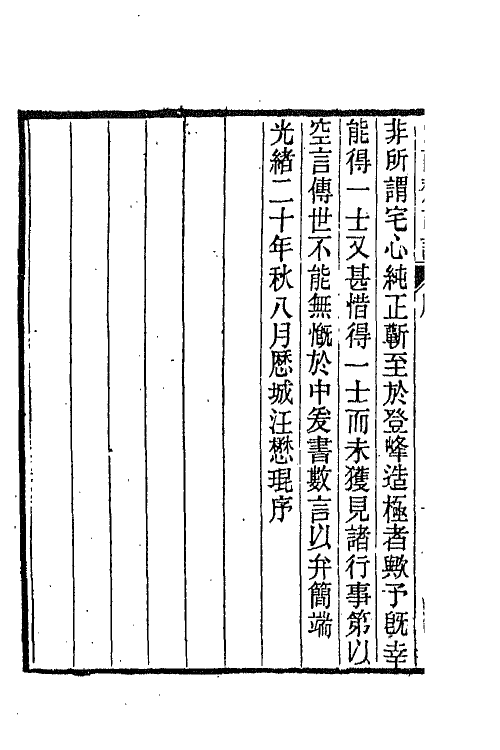 非所謂宅心純正蘄至於登峰造極者歟予旣幸
能得一士又甚惜得一士而未獲見諸行事第以
空言傳世不能無慨於中爰書數言以弁簡端
光緒二十年秋八月歷城汪懋琨序